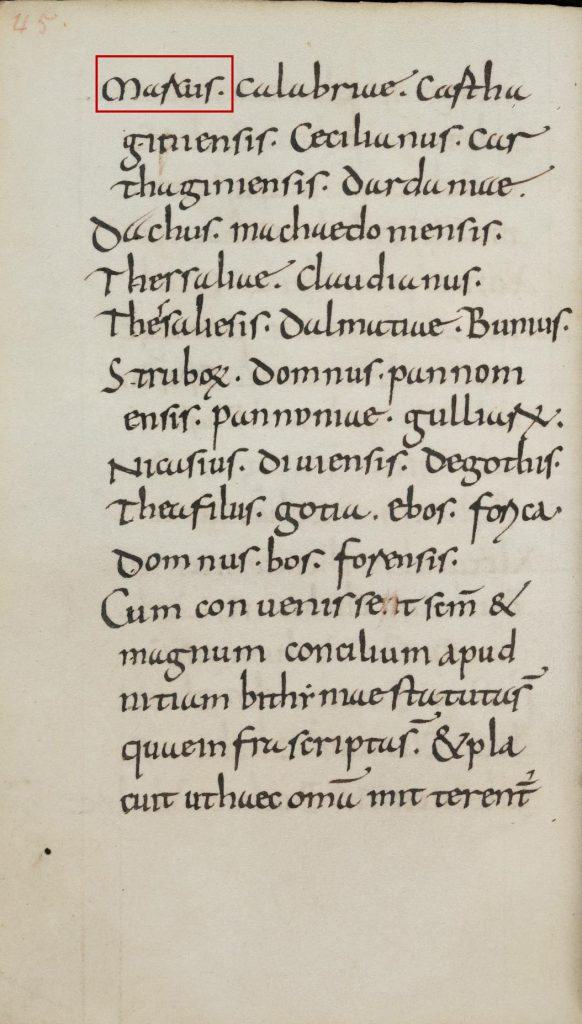 45.
Marcus. calabriae. Cartha
giniensis. Cecilianus. car
thaginiensis. dardaniae.
Dachus. machaedo niensis.
Thessaliae. Claudianus.
Thesaliesis. dalmatiae. Bunius.
Struboꝝ. domnus. pannoni
ensis. pannoniae. gulliaꝝ.
Nicasius. diuiensis. degothis.
Theafilus. gotia. ebos.
Domnus. bos. forensis.
Cum con uenissent scm̄ &
magnum concilium apud
nitiam bithiniae statuta s̄
quae infra scripta s̄. & pla
cuit ut haec omā mit terent̄